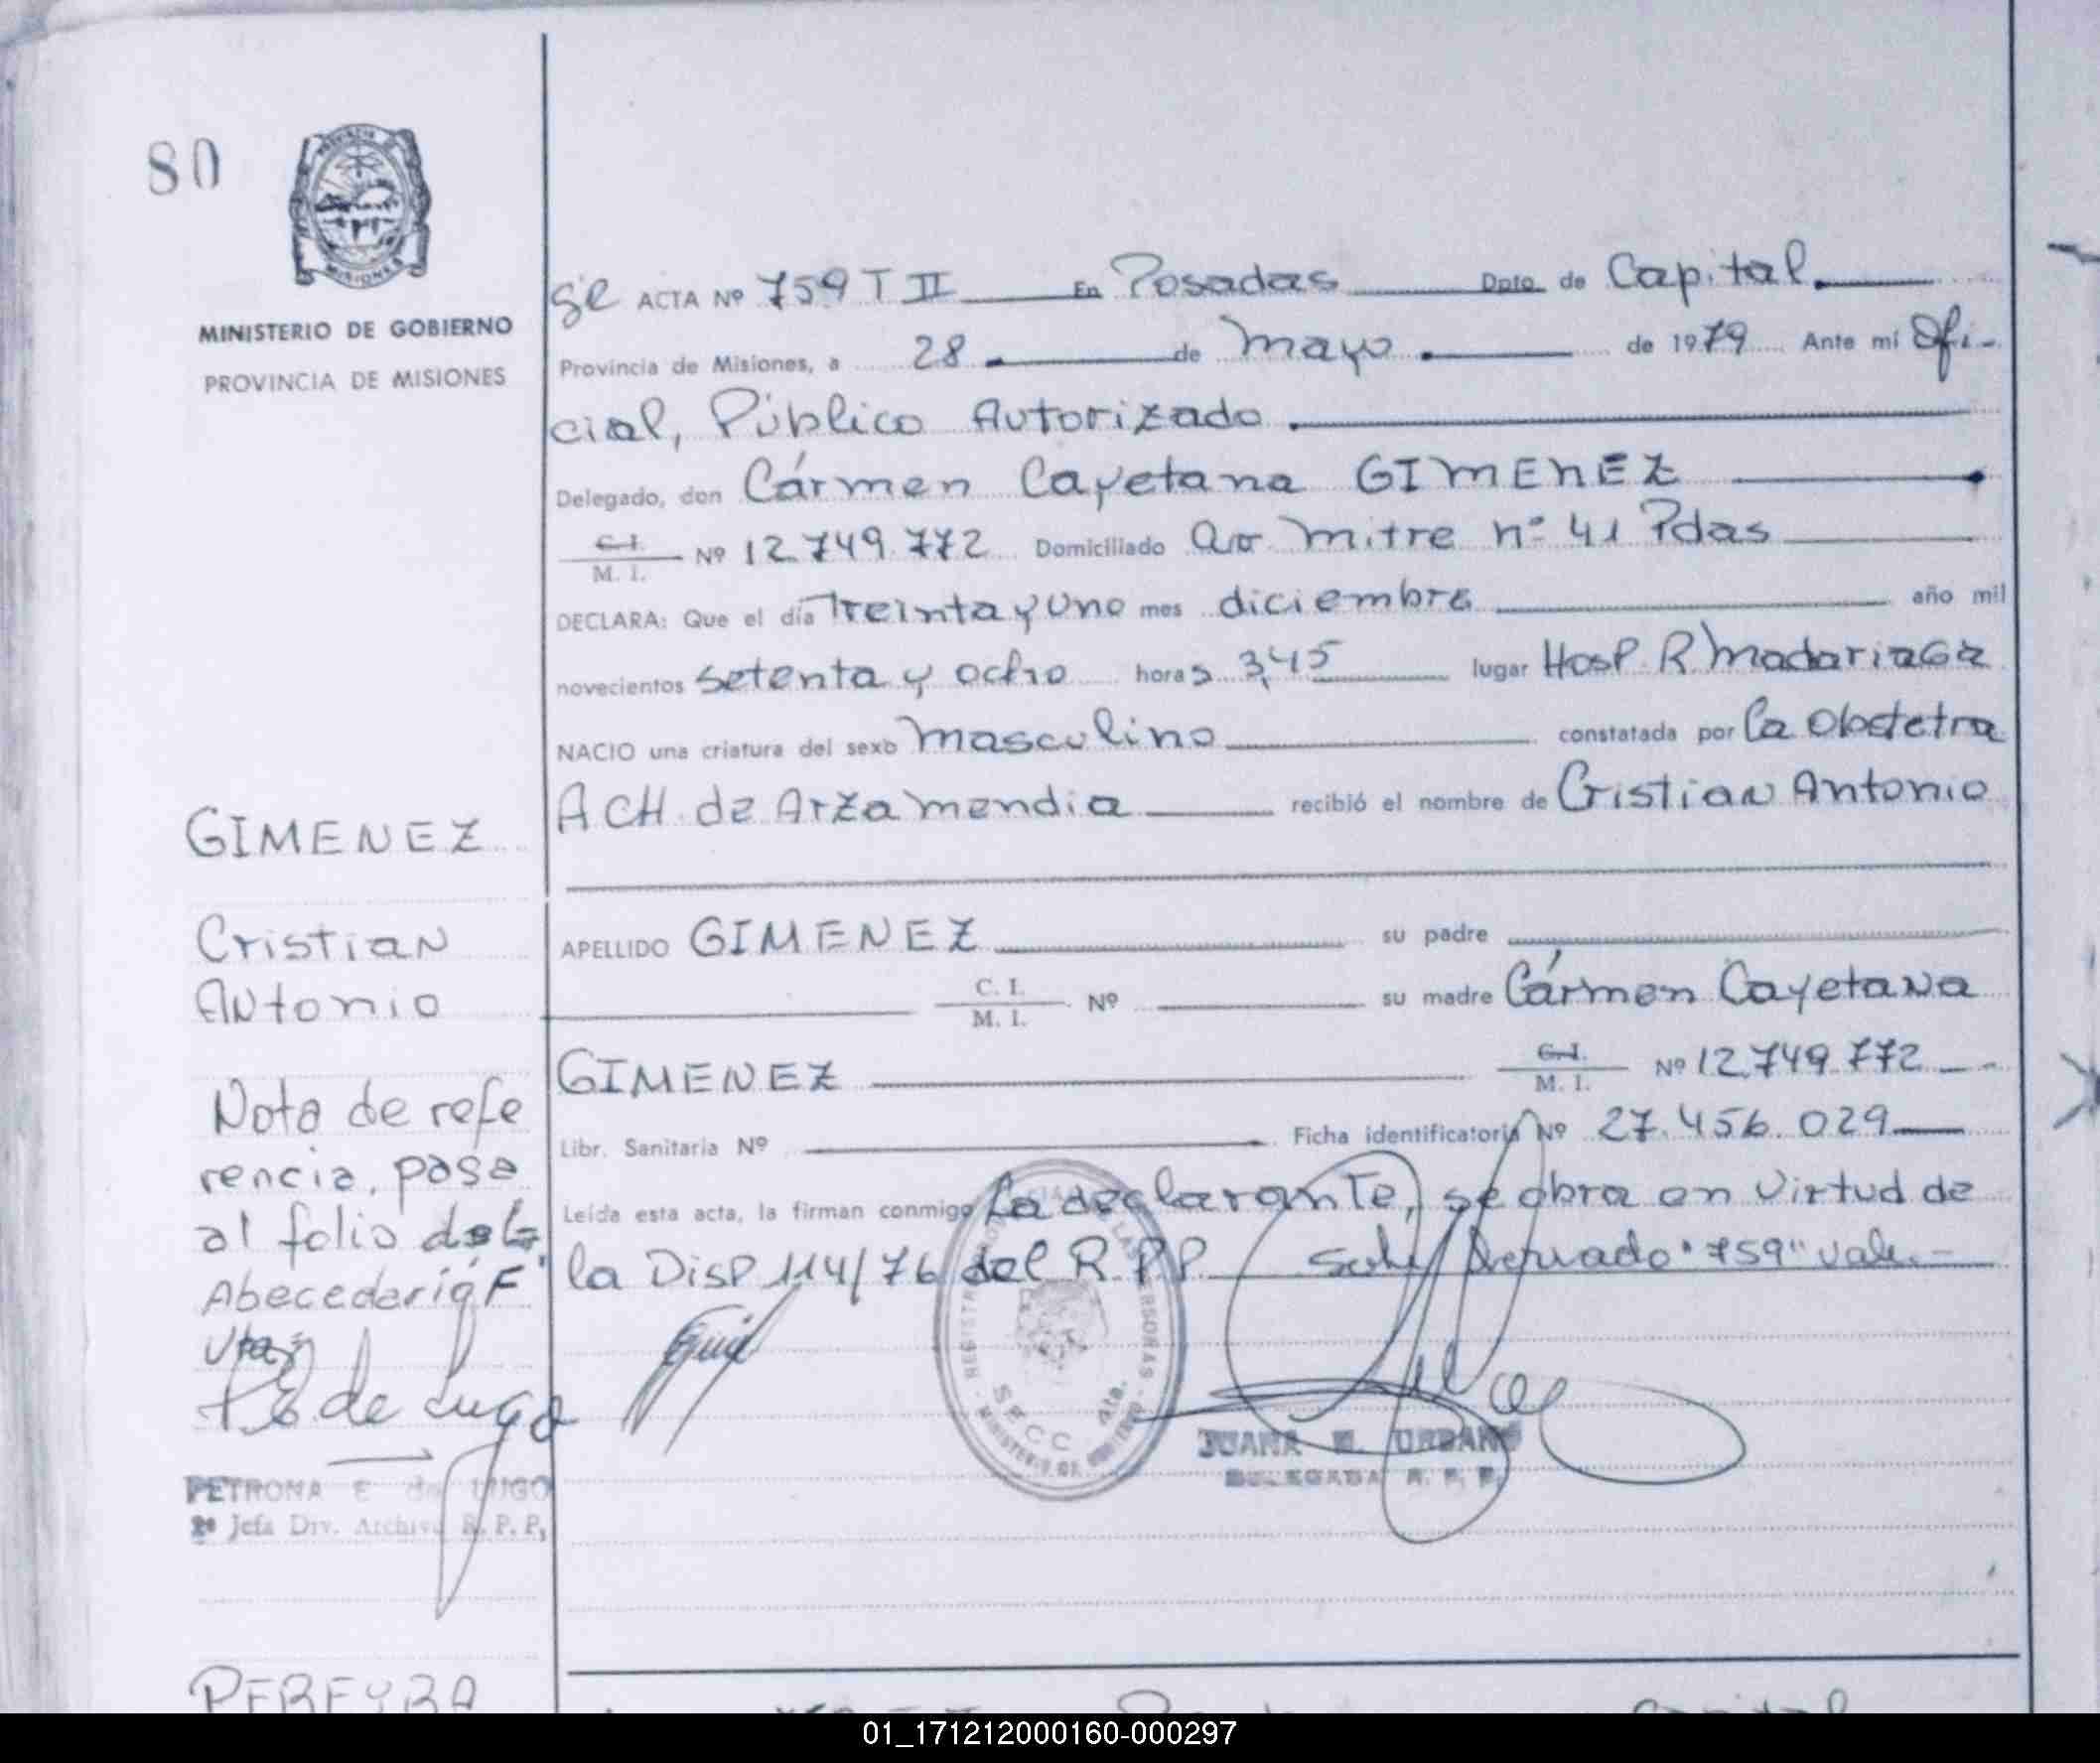 80
MINISTERIO DE GOBIERNO
PROVINCIA DE MISIONES
ACTA Nº 759 T II En Posadas Dpto. de Capital
Provincia de Misiones, a 28 de mayo de 1979 Ante mi Ofi-
cial, Público Autorizado
Delegado, don Cármen Cayetana GIMENEZ
C.I.
M. I. Nº 12.749.772 Domiciliado Av. Mitre nº 41 Pdas
DECLARA: Que el día Treinta y Uno mes diciembre año mil
novecientos setenta y ocho horas 3,45 lugar Hosp. R. Madariaga
NACIO una criatura del sexo masculino constatada por la Obstetra
A CH. de Arzamendia recibió el nombre de Cristian Antonio
GIMENEZ
Cristian
Antonio
APELLIDO GIMENEZ su padre
C. I.
M. I. Nº su madre Cármen Cayetana
GIMENEZ C.I.
M. I. Nº 12.749.772
Libr. Sanitaria Nº Ficha identificatoria Nº 27.456.029
Leída esta acta, la firman conmigo La declarante, se obra en Virtud de
la Disp 114/76 del R.P.P. "759" vale.-
Nota de refe
rencia, pasa
al folio
Abecedario
P E. de Lugo
PETRONA E de LUGO
2º Jefa Div. Archivo R. P. P.
SECC 4ta.
JUANA E. URBANO
DELEGADA R. P. P.
PEREYRA
01_171212000160-000297